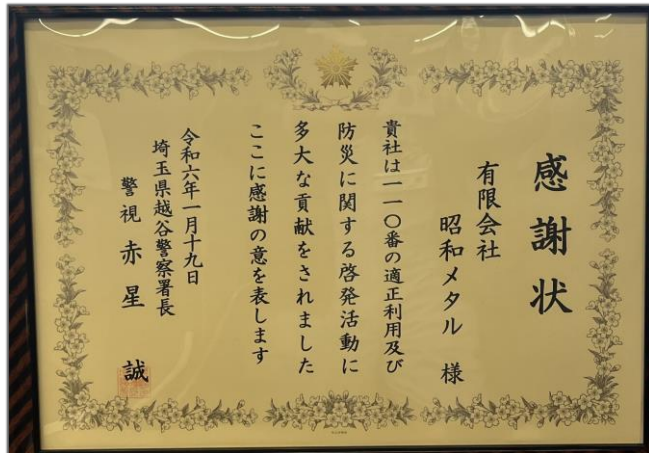 感謝状
有限会社
昭和メタル 様
貴社は一一〇番の適正利用及び
防災に関する啓発活動に
多大な貢献をされました
ここに感謝の意を表します
令和六年一月十九日
埼玉県越谷警察署長
警視 赤星 誠